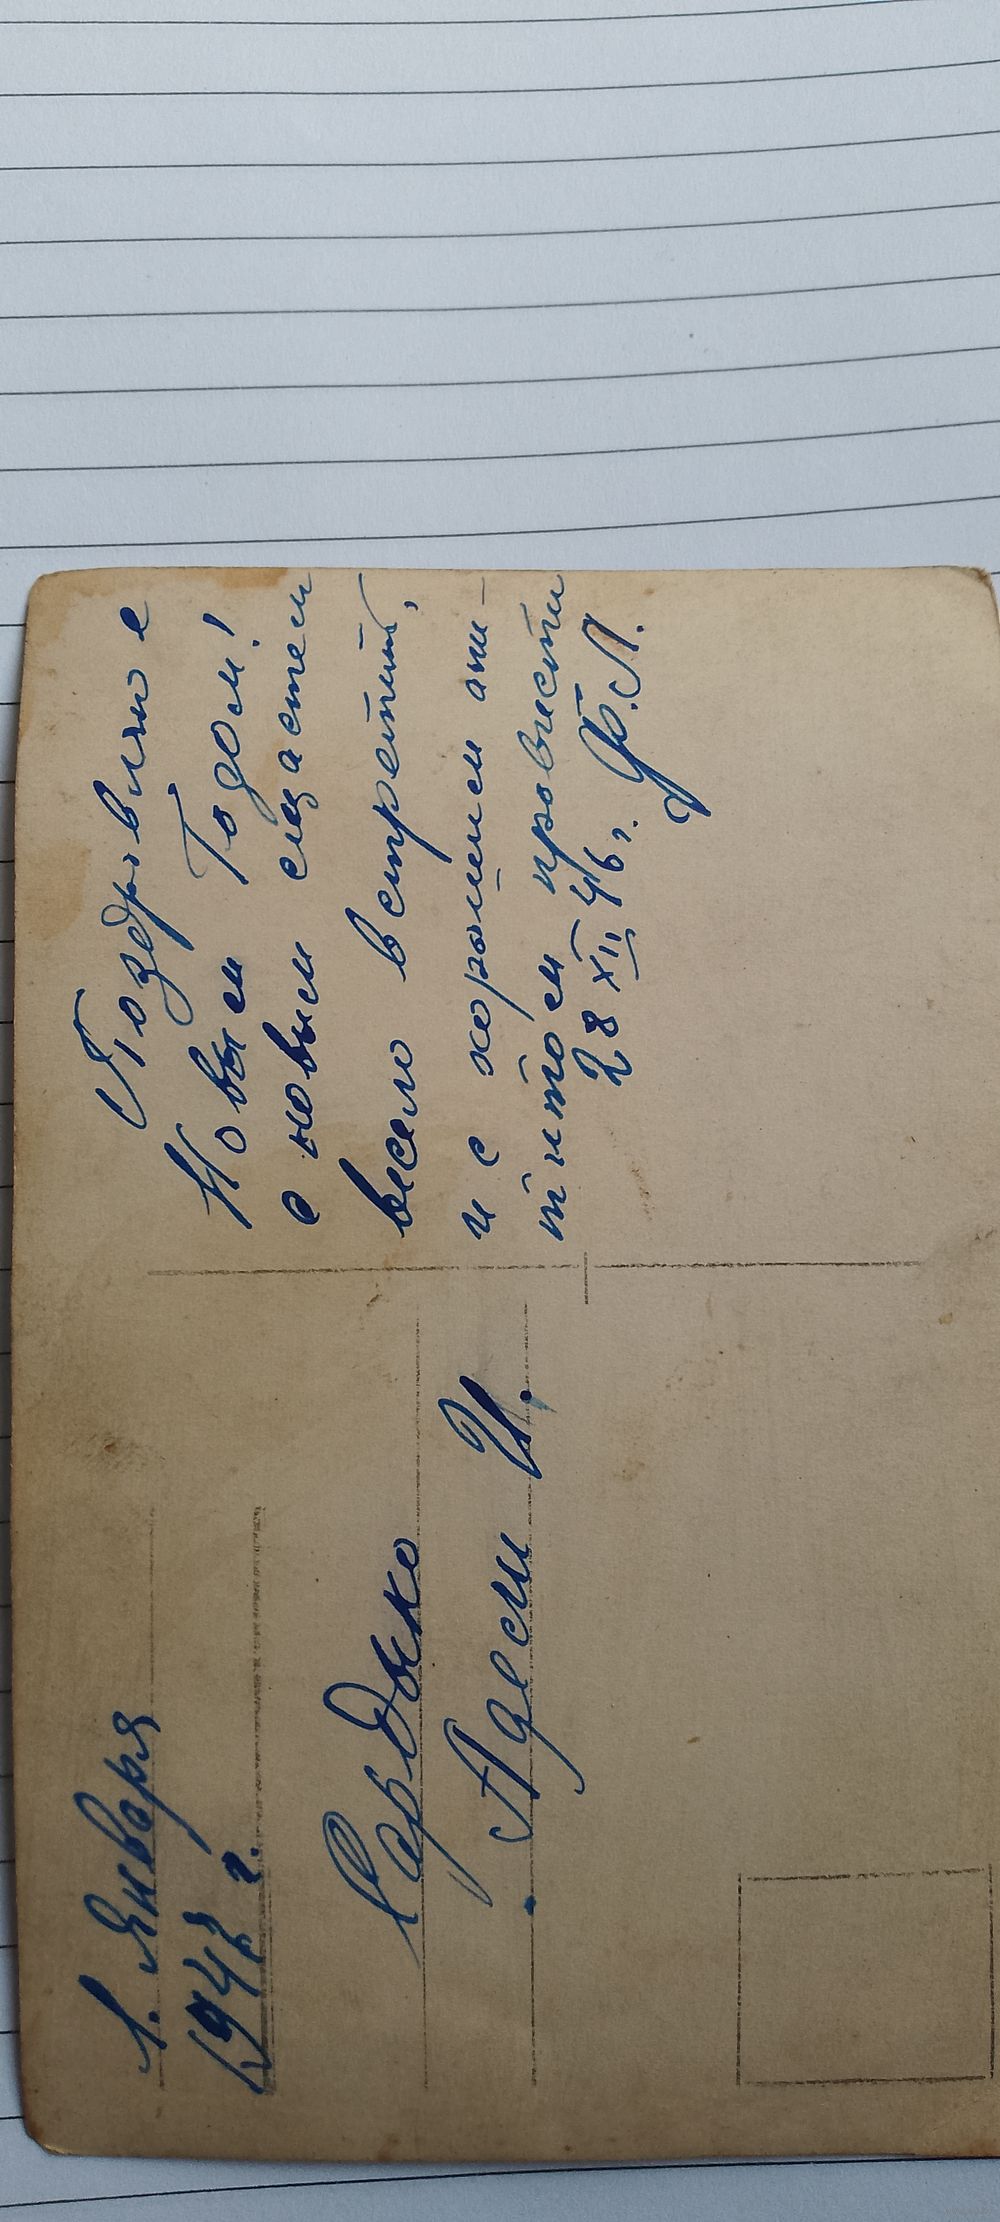 1. Января
1947 г.
Сардыко
Адам И.
Поздровляю с
Новым Годом!
с новым сщастем
весело встретить,
и с хорошем апи-
титом провисти
28 XII 46 г. Ф.Л.